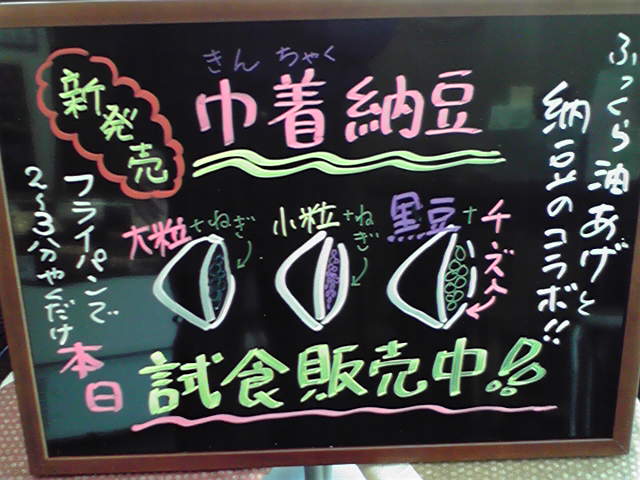 ふっくら油あげと
納豆のコラボ!!
新発売
きんちゃく
巾着納豆
大粒+ねぎ
小粒+ねぎ
黒豆+チーズ入
フライパンで
2~3分やくだけ
本日
試食販売中!!